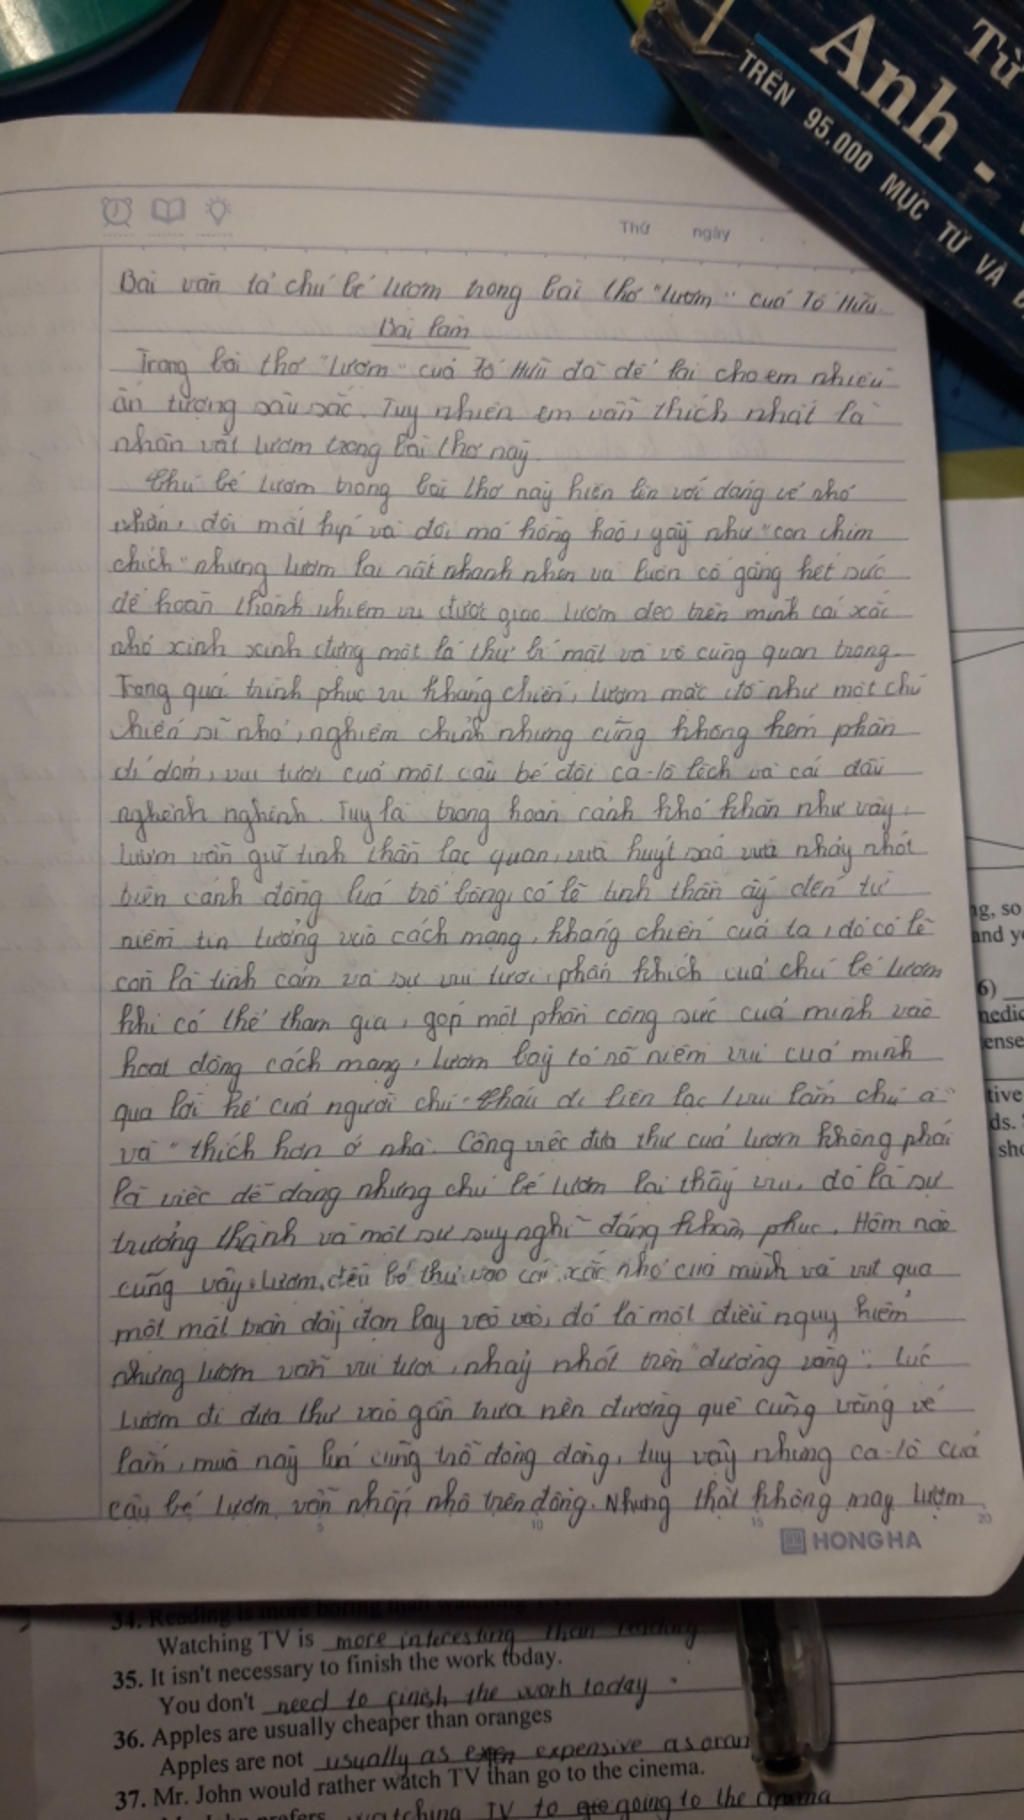 Từ
Anh -
TRÊN 95.000 MỤC TỪ VÀ
Thứ ngày
Bài văn tả chú bé lượm trong bài thơ "lượm" của Tố Hữu
Bài làm
Trong bài thơ "Lượm" của Tố Hữu đã để lại cho em nhiều
ấn tượng sâu sắc. Tuy nhiên em vẫn thích nhất là
nhân vật lượm trong bài thơ này.
Chú bé lượm trong bài thơ này hiện lên với dáng vẻ nhỏ
nhắn, đôi mắt híp và đôi má hồng hào, gầy như "con chim
chích" nhưng lượm lại rất nhanh nhẹn và luôn cố gắng hết sức
để hoàn thành nhiệm vụ được giao lượm đeo trên mình cái xắc
nhỏ xinh xinh đựng một lá thư bí mật và vô cùng quan trọng.
Trong quá trình phục vụ kháng chiến, lượm mặc đồ như một chú
chiến sĩ nhỏ, nghiêm chỉnh nhưng cũng không kém phần
dí dỏm, vui tươi của một cậu bé đội ca-lô lệch và cái đầu
nghênh nghênh. Tuy là trong hoàn cảnh khó khăn như vậy,
lượm vẫn giữ tinh thần lạc quan, vừa huýt sáo vừa nhảy nhót
trên cánh đồng lúa trổ bông, có lẽ tinh thần ấy đến từ
niềm tin tưởng vào cách mạng, kháng chiến của ta, đó có lẽ
còn là tình cảm và sự vui tươi, phấn khích của chú bé lượm
khi có thể tham gia, góp một phần công sức của mình vào
hoạt động cách mạng, lượm bày tỏ rõ niềm vui của mình
qua lời kể của người chú "Cháu đi liên lạc / vui lắm chú à"
và "thích hơn ở nhà. Công việc đưa thư của lượm không phải
là việc dễ dàng nhưng chú bé lượm lại thấy vui, đó là sự
trưởng thành và một sự suy nghĩ đáng khâm phục. Hôm nào
cũng vậy, lượm đều bỏ thư vào cái xắc nhỏ của mình và vụt qua
một mặt trận đầy đạn bay vèo vèo, đó là một điều nguy hiểm
nhưng lượm vẫn vui tươi, nhảy nhót trên "đường vàng". Lúc
Lượm đi đưa thư vào gần trưa nên đường quê cũng vắng vẻ
lắm, mùa này lúa cũng trổ đòng đòng, tuy vậy nhưng ca-lô của
cậu bé lượm vẫn nhấp nhô trên đồng. Nhưng thật không may lượm
5 10 15 20
HONG HA
ng, so
and y
6)
medic
ense
tive
ds.
sh
34. Reading is more boring than watching TV.
Watching TV is more interesting than reading
35. It isn't necessary to finish the work today.
You don't need to finish the work today.
36. Apples are usually cheaper than oranges
Apples are not usually as expensive as oran
37. Mr. John would rather watch TV than go to the cinema.
prefers watching TV to going to the cinema